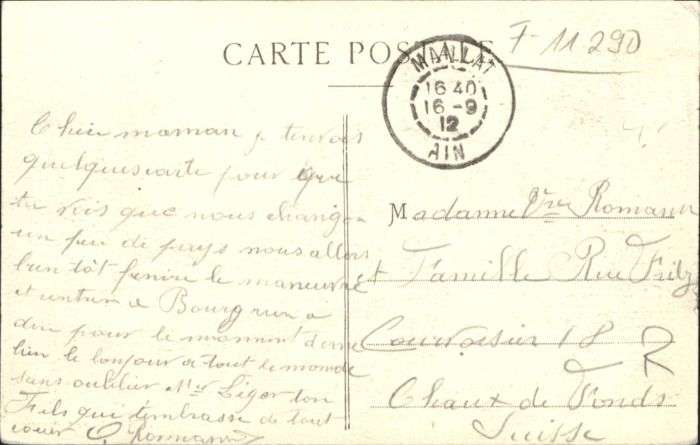 CARTE POSTALE
F-11290
MAILLAT
16 40
16 - 9
12
AIN
Chère maman je tenvois
quelquescarte pour que
tu vois que nous change
un peu de pays nous allons
bien tôt fenire le maneuvre
et rentrer a Bourg rien a
dire pour le moment donne
bien le bonjour a tout le monde
sans oublier Mr Liger ton
Fils qui tembrasse de tout
couer C Romann
Madame Vve Romann
et Famille Rue Fritz
Courvoisier 18
Chaux de Fonds
Suisse